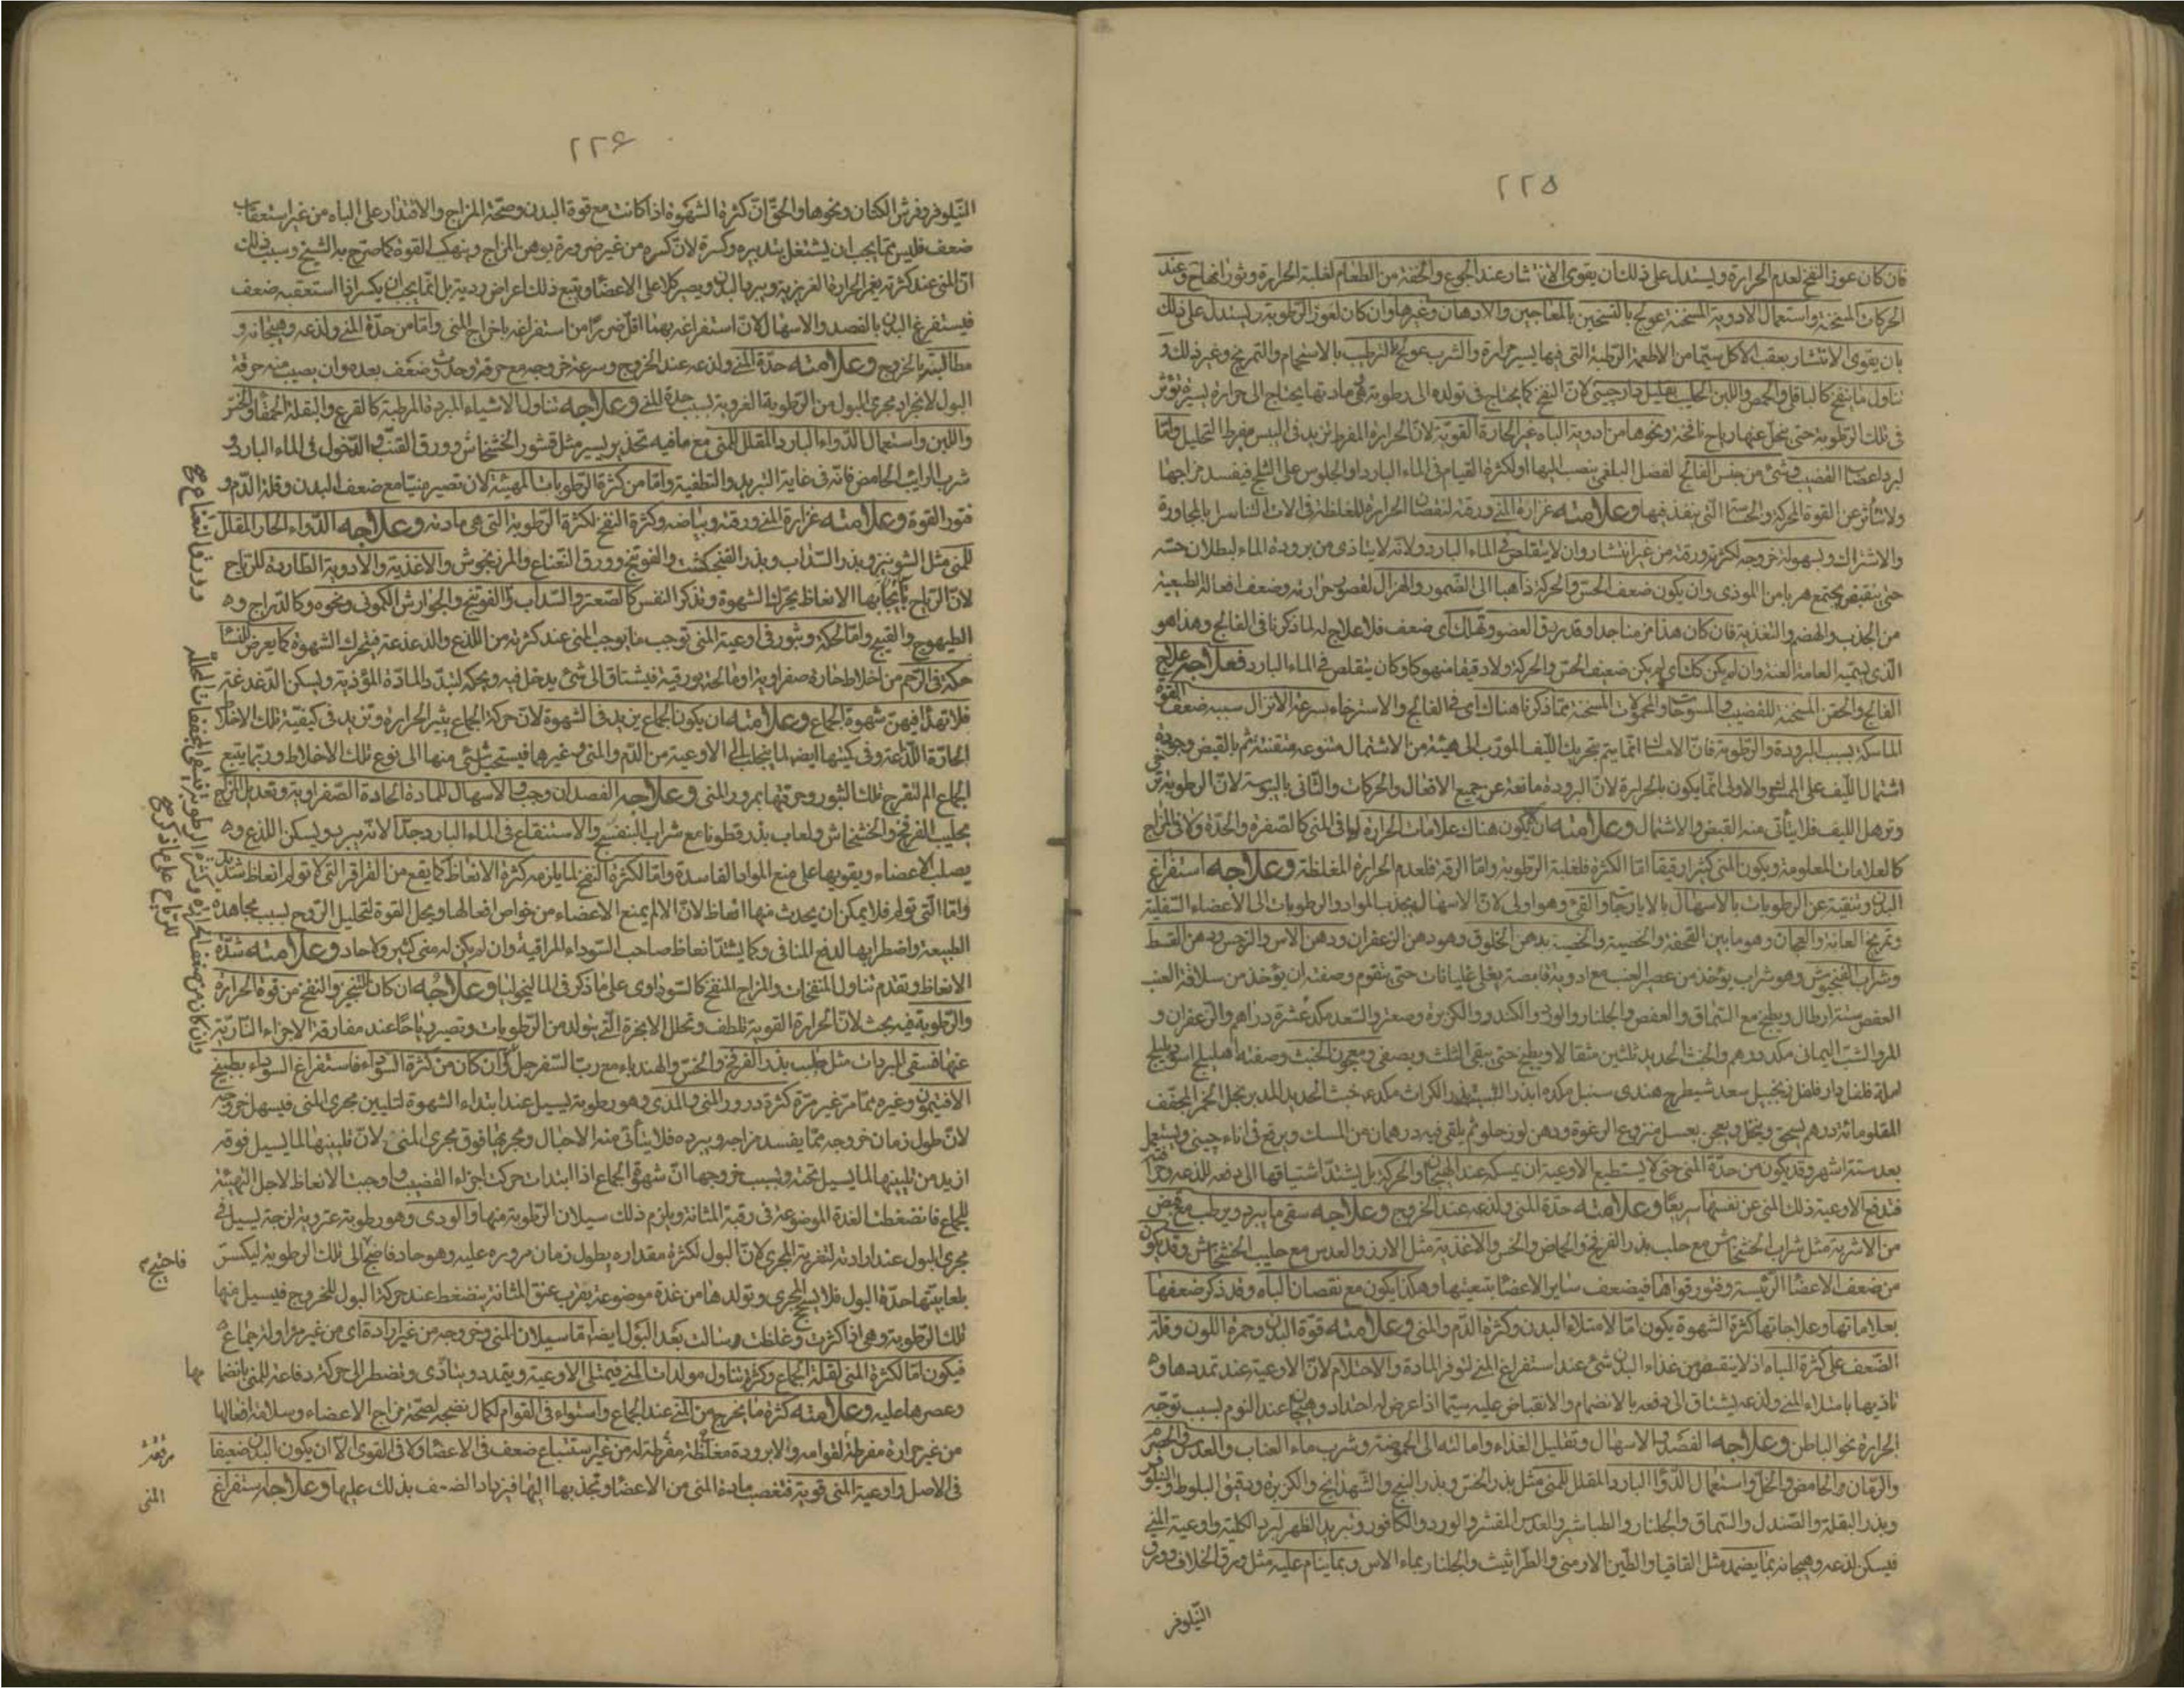 ٢٢٥
فان كان عوز النفخ لعدم الحرارة ويستدل على ذلك ان يقوى الانتشار عند الجوع والخفة من الطعام لغلبة الحرارة وثوران وعند
الحركات المسخنة واستعمال الادوية المسخنة عولج بالتسخين بالمعاجين والادهان وغيرها وان كان لعوز الرطوبة ويستدل على ذلك
بان يقوى الانتشار بعقب الاكل سيما من الاطعمة الرطبة التى فيها يسير حرارة والشرب عولج بالترطيب بالاستحمام والتمريخ وغير ذلك و
تناول ما ينفخ كالباقلى والحمص واللبن الحليب بقليل دارچينى لان النفخ كما يحتاج فى تولده الى رطوبة هى مادتها يحتاج الى حرارة يسيرة تؤثر
فى تلك الرطوبة حتى ينحل عنها رياح نافخة ونحوها من ادوية الباه غير الحارة القوية لان الحرارة المفرطة تزيد فى اليبس مفرط التحليل واما
لبرد اعصاب القضيب وشئ من جنس الفالج لفضل البلغمى ينصب اليها او لكثرة القيام فى الماء البارد او الجلوس على الثلج فيفسد مزاجها
ولا تتأثر عن القوة المحركة والحساسة التى ينفذ فيها وعلامته غزارة المنى ورقته لنقصان الحرارة المغلظة فى الات التناسل بالمجاورة
والاشتراك وسهولة خروجه لكثرته ورقته من غير انتشار وان لا يتقلص فى الماء البارد ولانه لا يتاذى من برودة الماء لبطلان حسه
حتى ينقبض ويجتمع هربا من الموذى وان يكون ضعف الحس والحركة ذاهبا الى الضمور والهزال لقصور حرارته وضعف افعاله الطبيعية
من الجذب والهضم والتغذية فان كان هذا مزمنا جدا وقد يدق العضو وتهالك اى ضعف فلا علاج له لما ذكرنا فى الفالج وهذا هو
الذى يسميه العامة العنة وان لم يكن كك اى لم يكن ضعيف الحس والحركة ولا دقيقا منهوكا وكان يتقلص فى الماء البارد فعلاجه علاج
الفالج والحقن المسخنة للقضيب والمسوحات والحمولات المسخنة مما ذكرنا هناك اى فى الفالج والاسترخاء سرعة الانزال سببه ضعف القوة
الماسكة بسبب البرودة والرطوبة فان الامساك انما يتم بتحريك الليف المورب الى هيئة من الاشتمال متنوعة متقنة ثم بالقبض وجودة
اشتمال الليف على الممسك والاولى انما يكون بالحرارة لان البرودة مانعة عن جميع الافعال والحركات والثانى باليبوسة لان الرطوبة ترخى
وترهل الليف فلا يتأتى منه القبض والاشتمال وعلامته ان لا يكون هناك علامات الحرارة لا فى المنى كالصفرة والحدة ولا فى المزاج
كالعلامات المعلومة ويكون المنى كثيرا رقيقا اما الكثرة فلغلبة الرطوبة واما الرقة فلعدم الحرارة المغلظة وعلاجه استفراغ
البدن وتنقيته عن الرطوبات بالاسهال بالايارجات والقئ وهو اولى لان الاسهال يجذب المواد والرطوبات الى الاعضاء السفلية
وتمريخ العانة والعجان وهو ما بين القحفة والخصية والخصية بدهن الخلوق وهو دهن الزعفران ودهن الاس والنرجس ودهن القسط
وشراب الفنجنوش وهو شراب يؤخذ من عصير العنب مع ادوية قابضة يغلى غليانات حتى يتقوم وصفته ان يؤخذ من سلافة العنب
العفص ستة ارطال ويطبخ مع السماق والعفص والجلنار والورد والكندر والكزبرة وصعتر والسعد مكد عشرة دراهم والزعفران و
المر والشب اليمان مكد درهم والخبث الحديد ثلثين مثقالا ويطبخ حتى يبقى الثلث ويصفى ومعجون الخبث وصفته اهليلج اسود بليلج
املة فلفل دار فلفل زنجبيل سعد شيطرج هندى سنبل مكده بذر الشبت بذر الكراث مكد خبث الحديد المدبر بخل الخمر المجفف
المقلو مائة درهم يسحق وينخل ويعجن بعسل منزوع الرغوة ودهن لوز حلو ثم يلقى فيه درهمان من المسك ويرفع فى اناء چينى ويستعمل
بعد ستة اشهر وقد يكون من حدة المنى حتى لا يستطيع الاوعية ان يمسكه عند الهيجان والحركة بل يشتد اشتياقها الى دفعه للذعه وحدا
فتدفع الاوعية ذلك المنى عن نفسها سريعا وعلامته حدة المنى ولذعه عند الخروج وعلاجه سقى ما يبرد ويرطب مع قبض
من الاشربة مثل شراب الخشخاش مع حليب بذر الفرفخ والحماض والخس والاغذية مثل الارز والعدس مع حليب الخشخاش وقد يكون
من ضعف الاعضا الرئيسة وفتور قواها فيضعف ساير الاعضا بتبعيتها وهكذا يكون مع نقصان الباه وقد ذكر ضعفها
بعلاماتها وعلاجاتها كثرة الشهوة يكون اما لامتلاء البدن وكثرة الدم والمنى وعلامته قوة البدن وحمرة اللون وقلة
الضعف على كثرة الباه اذ لا ينقص من غذاء البدن شئ عند استفراغ المنى لتوفر المادة والاحتلام لان الاوعية عند تمددها و
تاذيها بامتلاء المنى ولذعه يشتاق الى دفعه بالانضمام والانقباض عليه سيما اذا عرض له احتداد وهيجان عند النوم بسبب توجه
الحرارة نحو الباطن وعلاجه الفصد والاسهال وتقليل الغذاء وامالته الى الحموضة وشرب ماء العناب والعدس والحصرم
والرمان والحامض والخل واستعمال الدوا البارد المقلل للمنى مثل بذر الخس وبذر البنج والشهدانج والكزبرة ودقيق البلوط والنيلوفر
وبذر البقلة والصندل والسماق والجلنار والطباشير والعدس المقشر والورد والكافور وتبريد الظهر لبرد الكلية واوعية المنى
فيسكن لذعه وهيجانه بما يضمد مثل القاقيا والطين الارمنى والطراثيث والجلنار بماء الاس وبما ينام عليه مثل ورق الخلاف وورق
النيلوفر
٢٢۶
النيلوفر وفرش الكتان ونحوها والحق ان كثرة الشهوة اذا كانت مع قوة البدن وصحة المزاج والاقتدار على الباه من غير استعقاب
ضعف فليس مما يجب ان يشتغل بتدبيره وكسره لان كسره من غير ضرورة يوهن المزاج وينهك القوة كما صرح به الشيخ وسبب ذلك
ان المنى عند كثرته يغمر الحرارة الغريزية ويبرد البدن ويصير كلا على الاعضا ويتبع ذلك اعراض ردية بل انما يجب ان يكسر اذا استعقبه ضعف
فيستفرغ البدن بالفصد والاسهال لان استفراغه بهما اقل ضررا من استفراغه باخراج المنى واما من حدة المنى ولذعه وهيجانه و
مطالبته بالخروج وعلامته حدة المنى ولذعه عند الخروج وسرعة خروجه مع حرقة وحدة وضعف بعده وان يصيب منه حرقة
البول لانجراد مجرى البول من الرطوبة الغروية بسبب حدة المنى وعلاجه تناول الاشياء المبردة المرطبة كالقرع والبقلة الحمقا والخس
واللبن واستعمال الدواء البارد المقلل للمنى مع ما فيه تخدير يسير مثل قشور الخشخاش وورق القنب والدخول فى الماء البارد و
شرب الرايب الحامض فانه فى غاية التبريد والتطفية واما من كثرة الرطوبات المهيئة لان تصير منيا مع ضعف البدن وقلة الدم و
فتور القوة وعلامته غزارة المنى ورقته وبياضه وكثرة النفخ لكثرة الرطوبة التى هى مادته وعلاجه الدواء الحار المقلل
للمنى مثل الشونيز وبذر السذاب وبذر الفنجنكشت والفوتنج وورق النعناع والمرزنجوش والاغذية والادوية الطاردة للرياح
لان الرياح بايجابها الانعاظ يحرك الشهوة وتذكر النفس كالصعتر والسذاب والفوتنج والجوارش الكمونى ونحوه وكالدراج و
الطيهوج والقبج واما لحكة وبثور فى اوعية المنى توجب ما يوجب المنى عند كثرته من اللذع والدغدغة فيتحرك الشهوة كما يعرض للنسا
حكة فى الرحم من اخلاط حارة صفراوية او مالحة بورقية فيشتاق الى شئ يدخل فيه ويحكه لتبدد المادة المؤذية ويسكن الدغدغة
فلا تهدأ فيهن شهوة الجماع وعلامته ان يكون الجماع يزيد فى الشهوة لان حركة الجماع يثير الحرارة وتزيد فى كيفية تلك الاخلاط
الحادة اللذاعة وفى كميتها ايضا لما ينجلب الى الاوعية من الدم والمنى وغيرهما فيستحيل شئ منها الى نوع تلك الاخلاط وربما يتبع
الجماع الم لتقرح تلك البثور وحرقتها بمرور المنى وعلاجه الفصد ان وجب والاسهال للمادة الحادة الصفراوية وتعديل المزاج
بحليب الفرفخ والخشخاش ولعاب بذر قطونا مع شراب البنفسج والاستنقاع فى الماء البارد جدا لانه يبرد ويسكن اللذع و
يصلب الاعضاء ويقويها على منع المواد الفاسدة واما لكثرة النفخ لما يلزمه كثرة الانعاظ كما يقع من القراقر التى لا تولم انعاظ شديد
واما التى تولم فلا يمكن ان يحدث منها انعاظ لان الالم يمنع الاعضاء من خواص افعالها ويحل القوة لتحليل الروح بسبب مجاهدة
الطبيعة واضطرابها لدفع المنافى وكما يشتد انعاظ صاحب السوداء المراقية وان لم يكن له منى كثير ولا حاد وعلامته شدة
الانعاظ وتقدم تناول المنفخات والمزاج المنفخ كالسوداوى على ما ذكر فى الماليخوليا وعلاجه ان كان التبخر والنفخ من قوة الحرارة
والرطوبة فيه بحث لان الحرارة القوية تلطف وتحلل الابخرة التى يتولد من الرطوبات وتصير رياحا عند مفارقة الاجزاء النارية
عنها فسقى المبردات مثل حليب بذر الفرفخ والخس والهندباء مع رب السفرجل وان كان من كثرة السوداء فاستفراغ السوداء بطبيخ
الافتيمون وغيره مما مر غير مرة كثرة درور المنى والمذى وهو رطوبة يسيل عند ابتداء الشهوة لتليين مجرى المنى فيسهل خروجه
لان طول زمان خروجه مما يفسد مزاجه ويبرده فلا يتأتى منه الاحبال ومجريها فوق مجرى المنى لان تليينها لما يسيل فوقه
ازيد من تليينها لما يسيل تحته وسبب خروجها ان شهوة الجماع اذا ابتدات حركت اجزاء القضيب واوجبت الانعاظ لاجل التهيئة
للجماع فانضغطت الغدة الموضوعة فى رقبة المثانة ويلزم ذلك سيلان الرطوبة منها والودى وهو رطوبة غروية لزجة يسيل فى
مجرى البول عند ارادته لتغرية المجرى لان البول لكثرة مقداره يطول زمان مروره عليه وهو حاد فاحتيج الى تلك الرطوبة ليكسر
بلعابيتها حدة البول فلا يسحج المجرى وتولدها من غدة موضوعة بقرب عنق المثانة ينضغط عند حركة البول للخروج فيسيل منها
تلك الرطوبة وهى اذا كثرت وغلظت سالت بعد البول ايضا اما سيلان المنى وخروجه من غير ارادة اى من غير مزاولة جماع
فيكون اما لكثرة المنى لقلة الجماع وكثرة تناول مولدات المنى فيمتلى الاوعية ويتمدد ويتأذى وتضطر الى حركة دفاعة للمنى بانضما
وعصرها عليه وعلامته كثرة ما يخرج من المنى عند الجماع واستواء فى القوام لكمال نضجه لصحة مزاج الاعضاء وسلامة افعالها
من غير حرارة مفرطة لقوامه ولا برودة مغلظة مفرطة له من غير استتباع ضعف فى الاعضا ولا فى القوى الا ان يكون البدن ضعيفا
فى الاصل واوعية المنى قوية فتغصب مادة المنى من الاعضا وتجذبها اليها فيزداد الضعف بذلك عليها وعلاجه استفراغ
ورق النعناع صح
وان كان من ضعف الحرارة وكثرة الرطوبة يسقى المجففات المحللة
للرياح على ما ذكر صح
فاحتيج
مها
مرققة
المنى